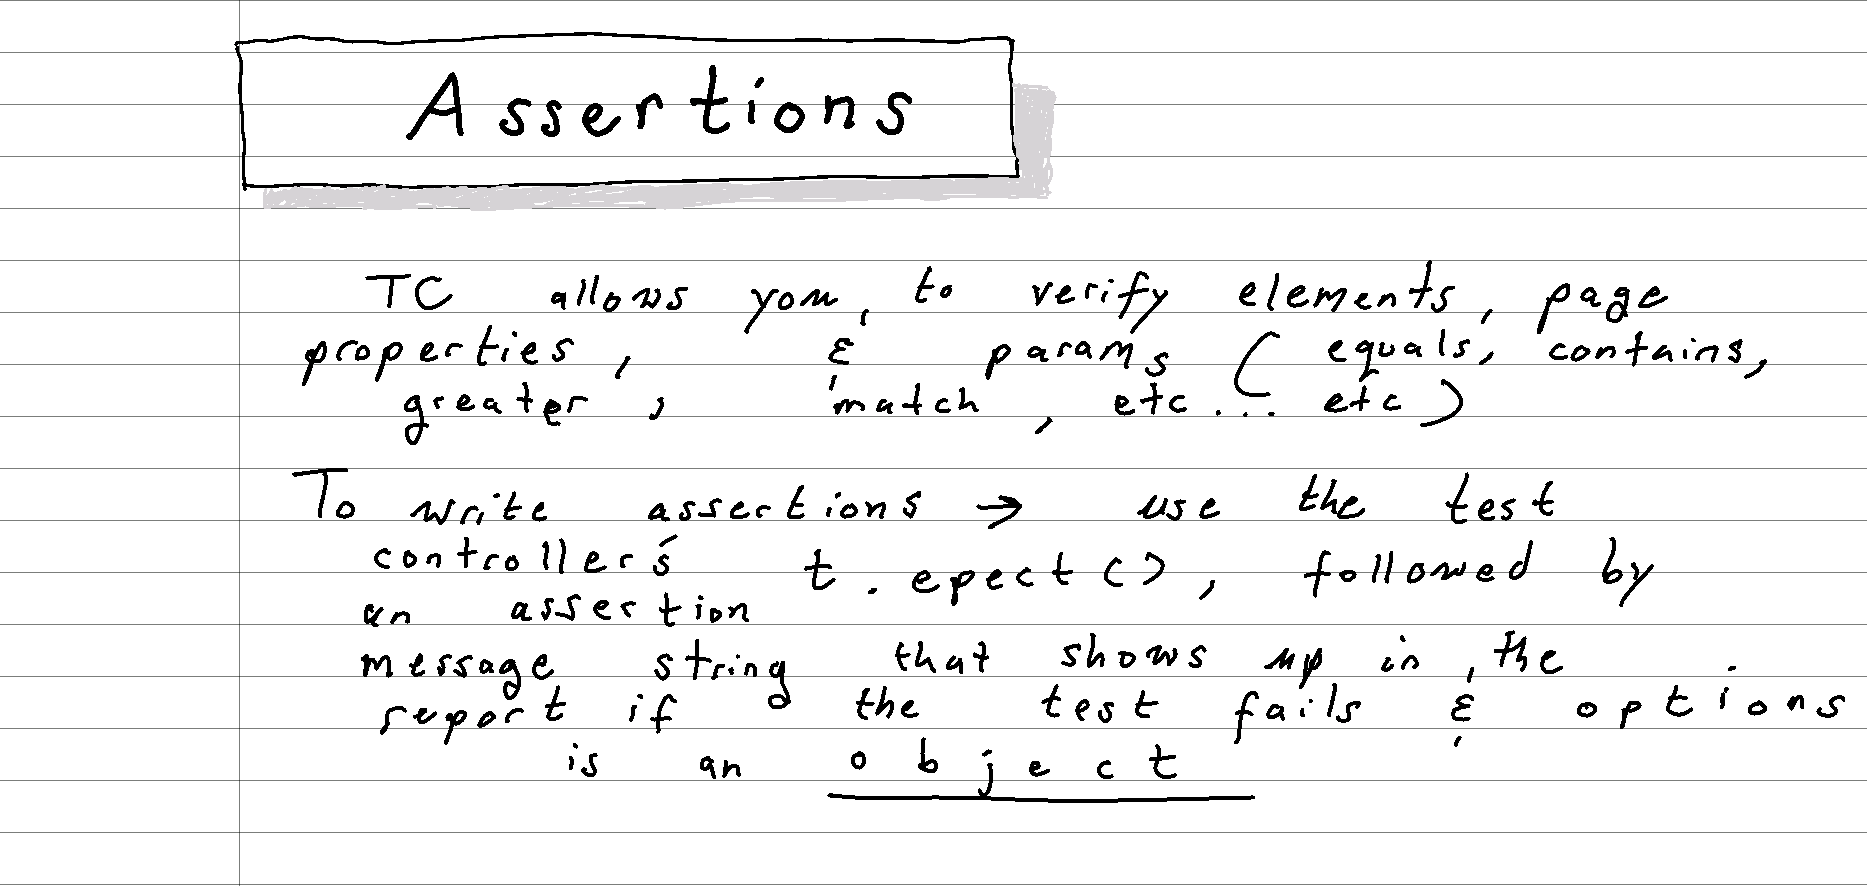 Assertions
TC allows you to verify elements, page
properties, & params (equals, contains,
greater, match, etc... etc)
To write assertions → use the test
controller's t.epect(), followed by
an assertion
message string that shows up in the
report if the test fails & options
is an object